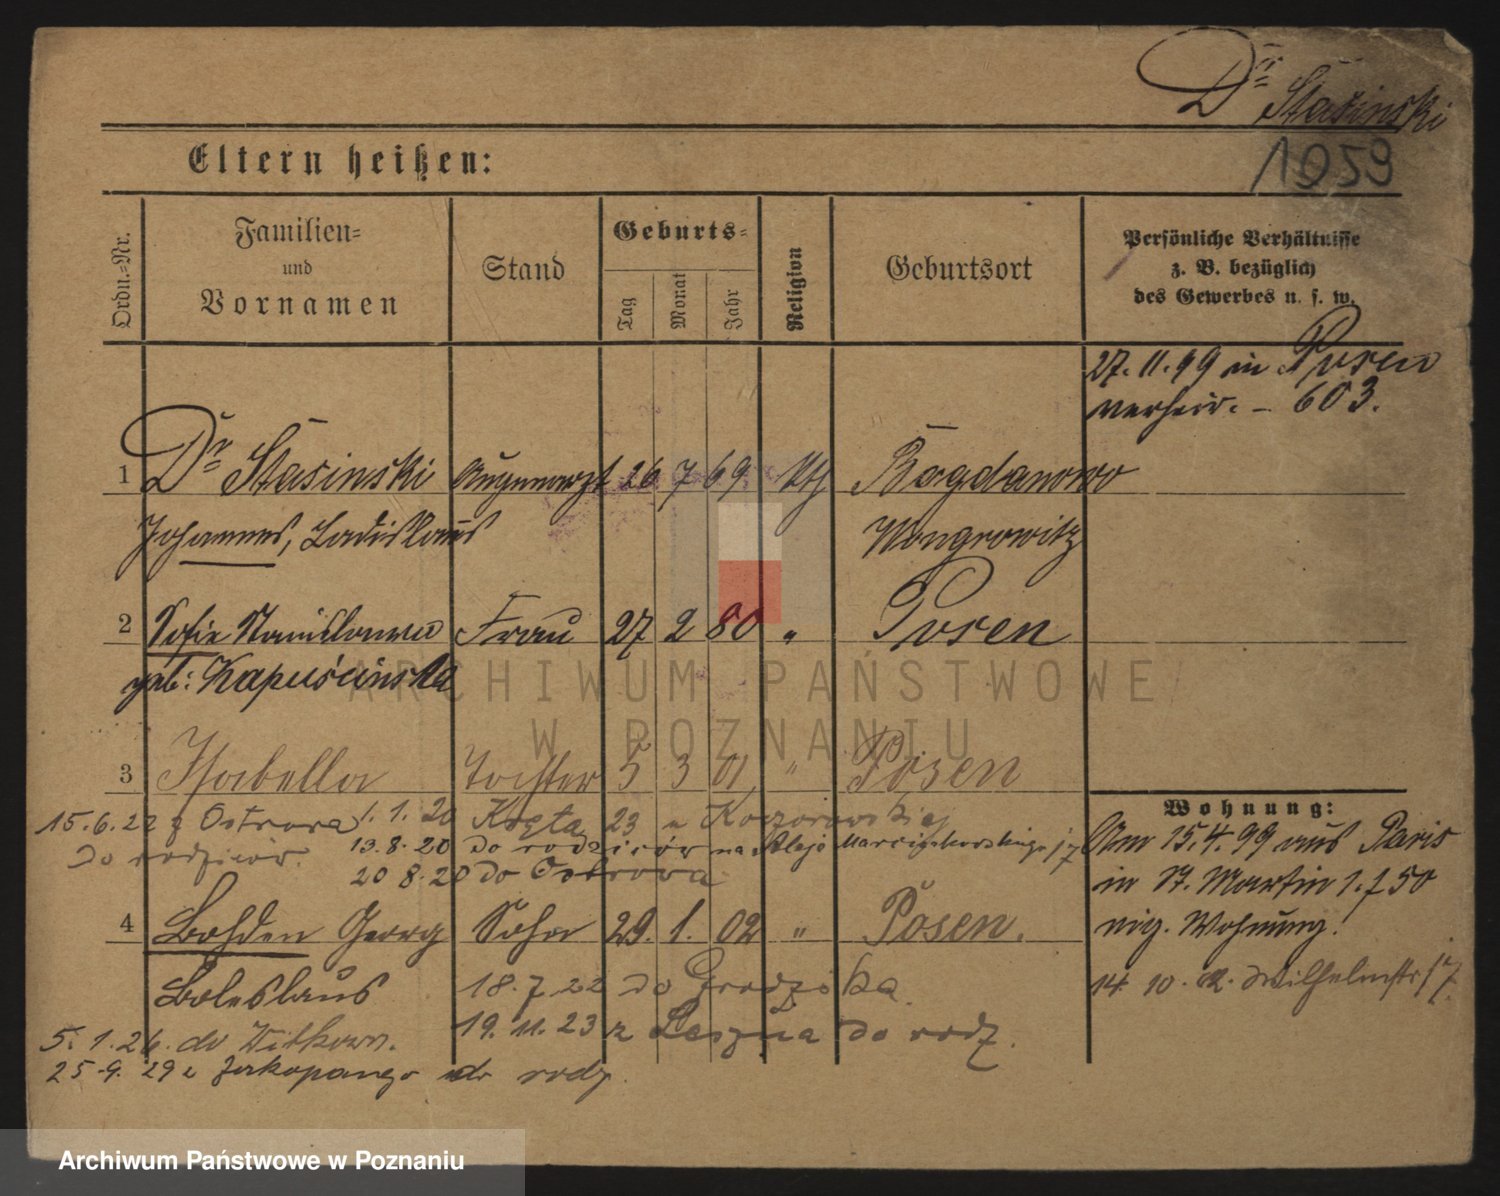 Dr. Stasinski
1059
Eltern heißen:
Ordn.-Nr.
Familien-
und
Vornamen
Stand
Geburts-
Tag
Monat
Jahr
Religion
Geburtsort
Persönliche Verhältnisse
z. B. bezüglich
des Gewerbes u. s. w.
27. 11. 99 in Posen
verheir. - 603.
1 Dr. Stasinski Augenarzt 26 7 69 kth Bogdanowo
Johannes, Ladislaus Wongrowitz
2 Sofie Stanislawa Frau 27 2 80 " Posen
geb: Kapuścinska
3 Isabella Tochter 5 3 01 " Posen
15.6.22 z Ostrowa 1.1.20
do rodziców. 13.8.20 do rodziców na Aleje Marcinkowskiego 17
20 8.20 do Ostrowa
Wohnung:
Am 15.4.99 aus Paris
in St. Martin
eig. Wohnung.
4 Bohdan Georg Sohn 29. 1. 02 " Posen.
Boleslaus 18.7 22 do Grodziska.
14 10. 02. Wilhelmstr 17.
5. 1. 26. do Witkowa. 19. 11. 23 z Leszna do rodz.
25.9. 29 z Zakopanego do rodz.
ARCHIWUM PAŃSTWOWE
W POZNANIU
Archiwum Państwowe w Poznaniu